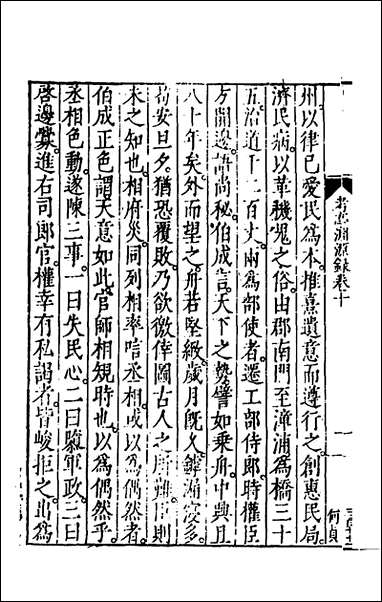 考亭淵源錄卷十
何貞
州以律己愛民為本推熹遺意而遵行之創惠民局
濟民病以革機鬼之俗由郡南門至漳浦為橋三十
五治道千二百丈兩為部使者遷工部侍郎時權臣
方開邊語尚秘伯成言天下之勢譬如乘舟中興且
八十年矣外而望之舟若堅緻歲月旣久罅漏寖多
苟安旦夕猶恐覆敗乃欲徼倖圖古人之所難臣則
未之知也相府災同列相率唁丞相或以為偶然者
伯成正色謂天意如此官師相規時也以為偶然乎
丞相色動遂陳三事一曰失民心二曰隳軍政三曰
啓邊釁進右司郎官權幸有私謁者皆峻拒之出為